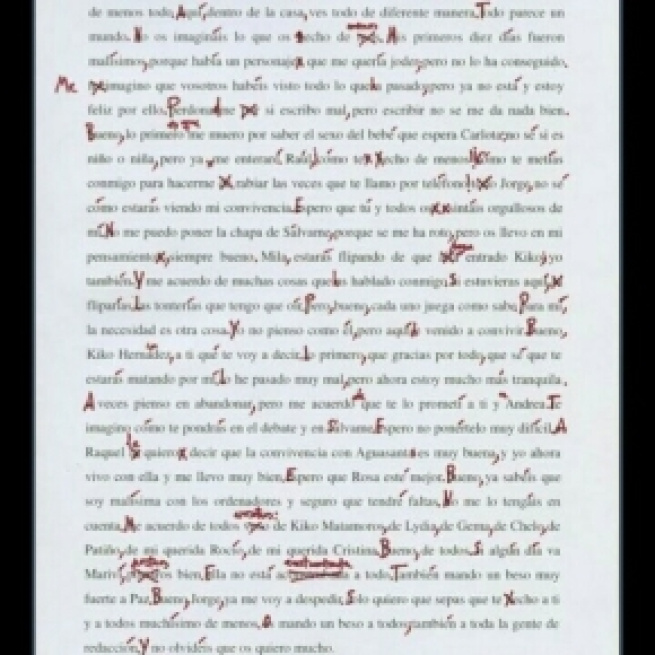 de menos todo. Aquí, dentro de la casa, ves todo de diferente manera. Todo parece un
mundo. No os imagináis lo que os echo de Mis primeros diez días fueron
malísimos, porque había un personaje que me quería joder, pero no lo ha conseguido.
Me imagino que vosotros habéis visto todo lo que ha pasado, pero ya no está y estoy
feliz por ello. Perdonadme si escribo mal, pero escribir no se me da nada bien.
Bueno, lo primero me muero por saber el sexo del bebé que espera Carlota, no sé si es
niño o niña, pero ya me enteraré. Raúl, cómo te echo de menos. Cómo te metías
conmigo para hacerme rabiar las veces que te llamo por teléfono! Jorge, no sé
cómo estarás viendo mi convivencia. Espero que tú y todos os sintáis orgullosos de
mí. No me puedo poner la chapa de Sálvame, porque se me ha roto, pero os llevo en mi
pensamiento, siempre bueno, Mila, estarás flipando de que entrado Kiko y yo
también. Y me acuerdo de muchas cosas que has hablado conmigo. Si estuvieras aquí,
fliparías. Las tonterías que tengo que oír. Pero, bueno, cada uno juega como sabe. Para mí,
la necesidad es otra cosa. Yo no pienso como él, pero aquí he venido a convivir. Bueno,
Kiko Hernández, a ti qué te voy a decir. Lo primero, que gracias por todo, que sé que te
estarás matando por mí. Lo he pasado muy mal, pero ahora estoy mucho más tranquila.
A veces pienso en abandonar, pero me acuerdo que te lo prometí a ti y Andrea. Te
imagino cómo te pondrás en el debate y en Sálvame. Espero no ponértelo muy difícil. A
Raquel le quiero decir que la convivencia con Aguasantas es muy buena, y yo ahora
vivo con ella y me llevo muy bien. Espero que Rosa esté mejor. Bueno, ya sabéis que
soy malísima con los ordenadores y seguro que tendré faltas. No me lo tengáis en
cuenta. Me acuerdo de todos de Kiko Matamoros, de Lydia, de Gema, de Chelo, de
Patiño, de mi querida Rocío, de mi querida Cristina. Bueno, de todos. Si algún día va
Mariví, bien. Ella no está a todo. También mando un beso muy
fuerte a Paz. Bueno, Jorge, ya me voy a despedir. Sólo quiero que sepas que te echo a ti
y a todos muchísimo de menos. mando un beso a todos, también a toda la gente de
redacción. Y no olvidéis que os quiero mucho.